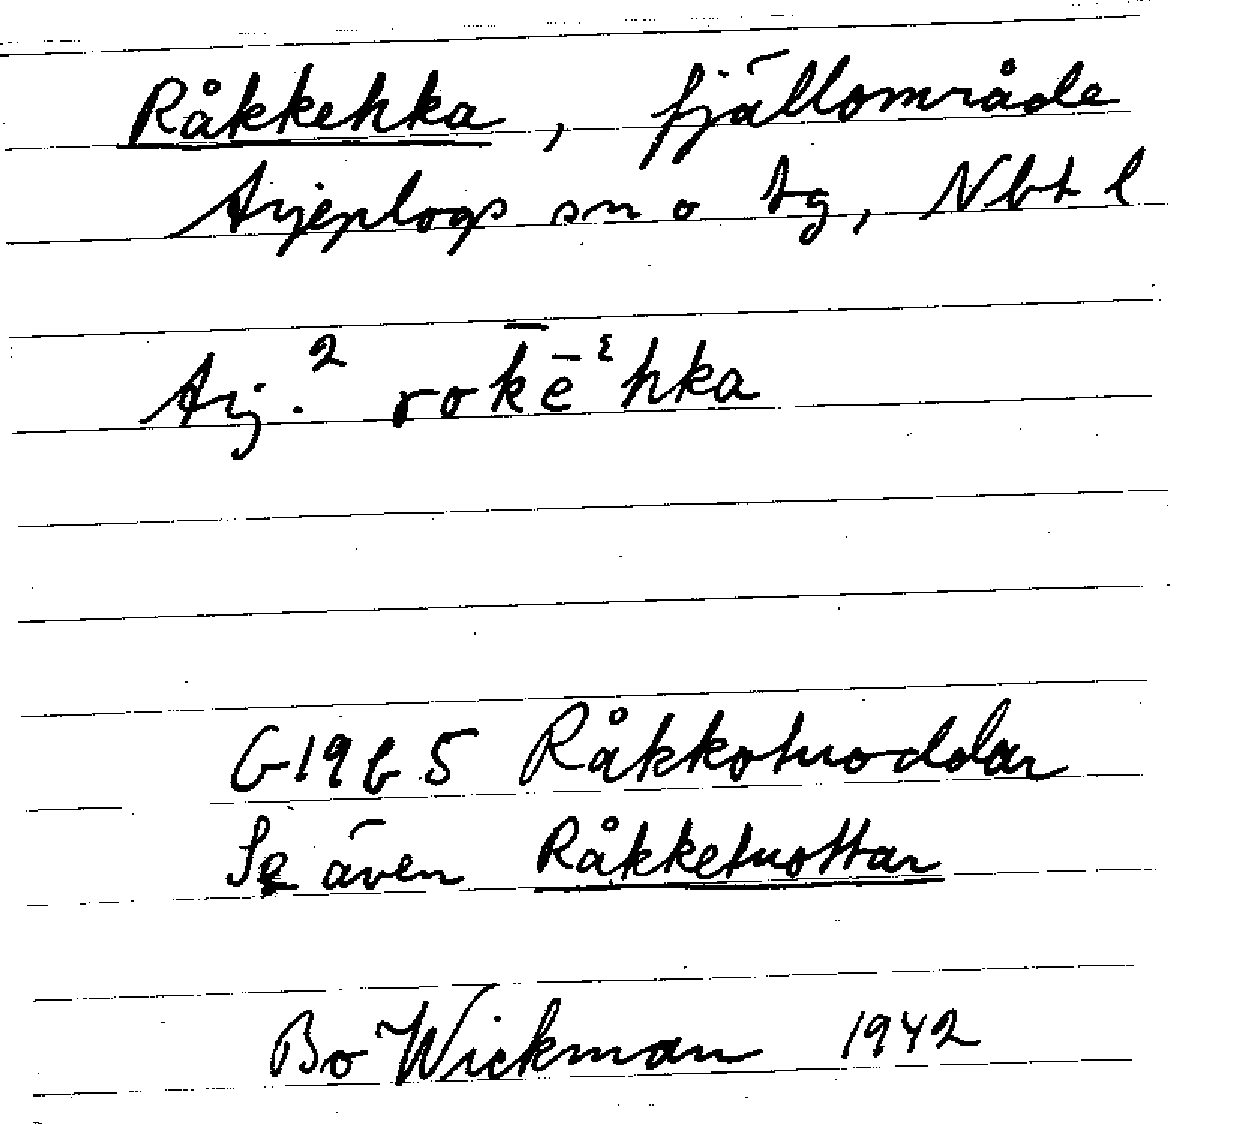 Råkkehka, fjällområde
Arjeplogs sn o tg, Nbt l
Arj.² rok̄ē ᶓhka
G1965 Råkkotuoddar
Se även Råkketuottar
Bo Wickman 1942